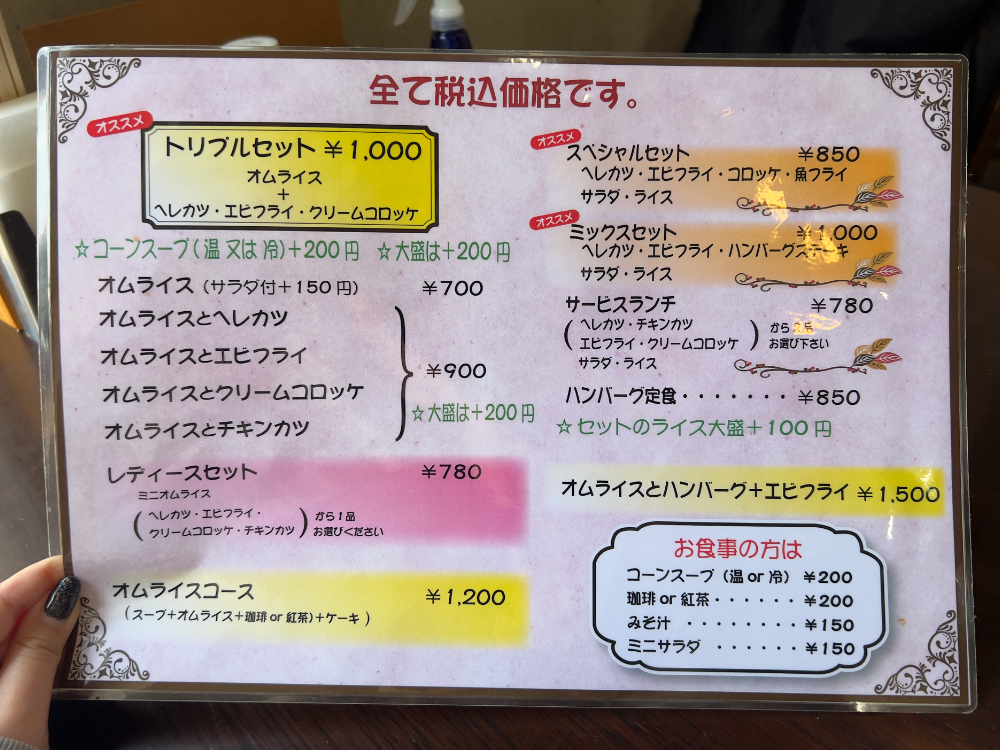 全て税込価格です。
オススメ
トリプルセット ￥1,000
オムライス
+
ヘレカツ・エビフライ・クリームコロッケ
☆コーンスープ(温 又は 冷)+200円 ☆大盛は+200円
オムライス (サラダ付+150円) ￥700
オムライスとヘレカツ
オムライスとエビフライ
オムライスとクリームコロッケ
オムライスとチキンカツ
￥900
☆大盛は+200円
レディースセット ￥780
ミニオムライス
(ヘレカツ・エビフライ・
クリームコロッケ・チキンカツ)
から1品
お選びください
オムライスコース ￥1,200
(スープ+オムライス+珈琲or紅茶)+ケーキ )
オススメ
スペシャルセット ￥850
ヘレカツ・エビフライ・コロッケ・魚フライ
サラダ・ライス
オススメ
ミックスセット ￥1,000
ヘレカツ・エビフライ・ハンバーグステーキ
サラダ・ライス
サービスランチ ￥780
(ヘレカツ・チキンカツ
エビフライ・クリームコロッケ)
から 品
お選び下さい
サラダ・ライス
ハンバーグ定食・・・・・・・￥850
☆セットのライス大盛+100円
オムライスとハンバーグ+エビフライ ￥1,500
お食事の方は
コーンスープ (温or冷) ￥200
珈琲 or 紅茶・・・・・・￥200
みそ汁 ・・・・・・・・￥150
ミニサラダ ・・・・・・￥150